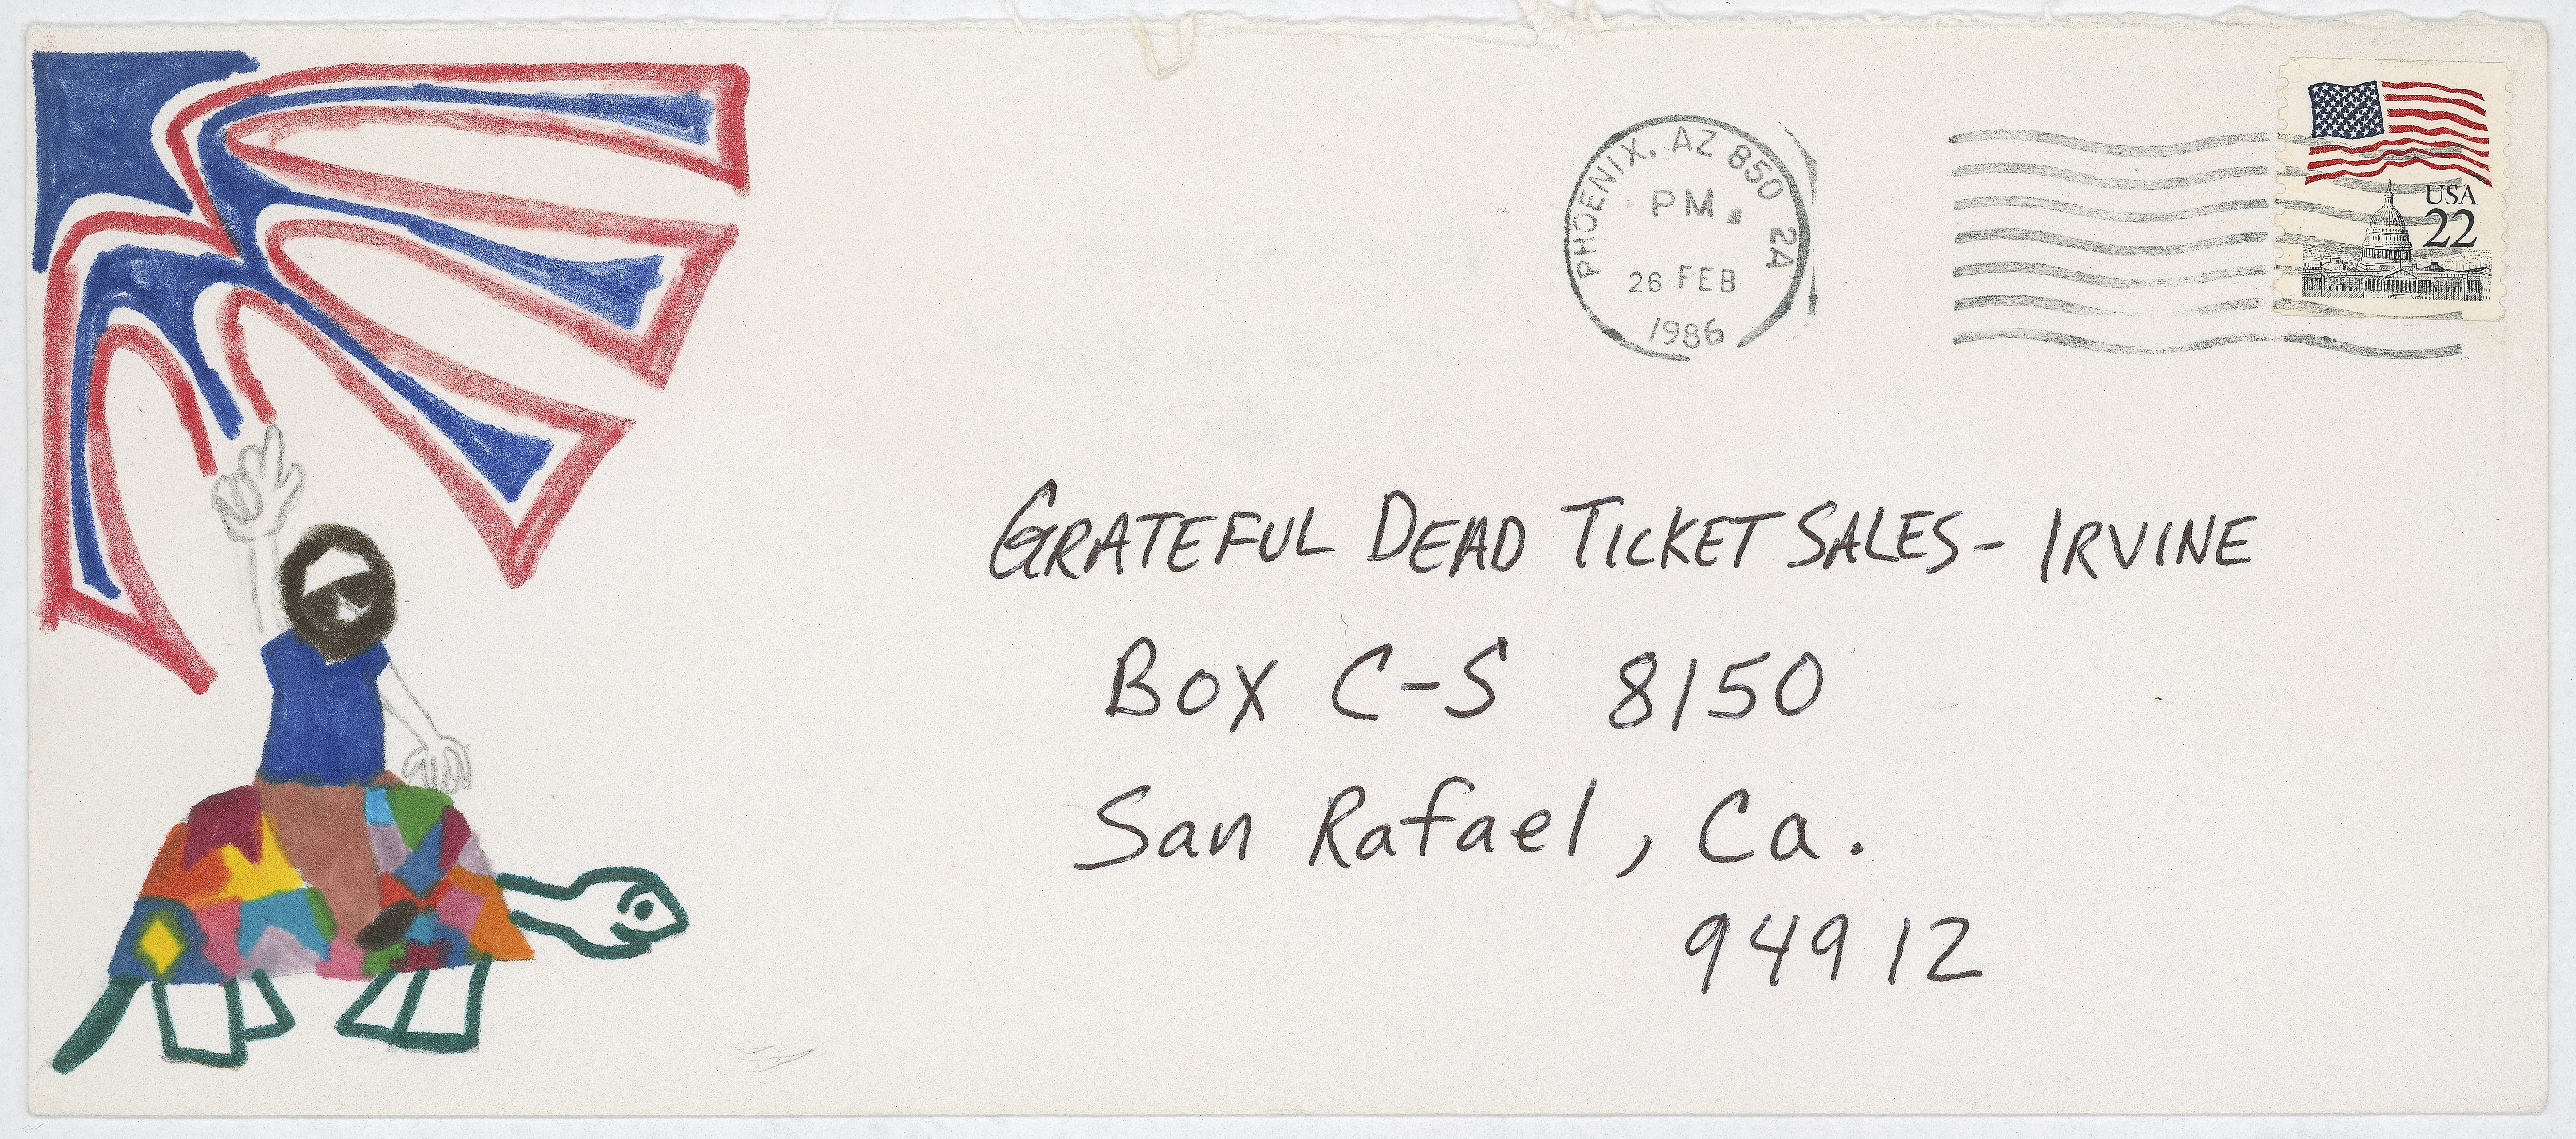 PHOENIX, AZ 850 2A
PM
26 FEB
1986
USA
22
GRATEFUL DEAD TICKET SALES - IRVINE
BOX C-S 8150
San Rafael, Ca.
94912